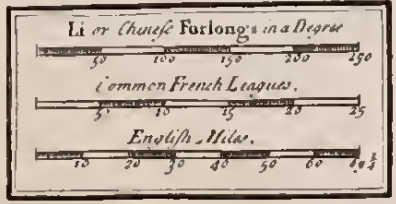 Li or Chineſe Furlongs in a Degree
50 100 150 200 250
Common French Leagues.
5 10 15 20 25
Engliſh Miles.
10 20 30 40 50 60 69 1/4